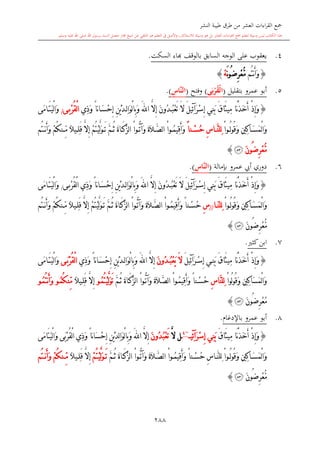 جمع القراءات العشر من طرق طيبة النشر
٤. يعقوب على الوجه السابق بالوقف بهاء السكت.
﴿ وَأَنتُم مُّعْرِضُونَهْ ﴾
٥. أبو عمرو بتقليل (ٱلْقُرْبَىٰ) وفتح (ٱلنَّاسِ).
﴿ وَإِذْ أَخَذْنَا مِيثَٰقَ بَنِىٓ إِسْرَٰٓءِيلَ لَا تَعْبُدُونَ إِلَّا ٱللَّهَ وَبِٱلْوَٰلِدَيْنِ إِحْسَانًا وَذِى ٱلْقُرْبَىٰ وَٱلْيَتَٰمَىٰ
وَٱلْمَسَٰكِينِ وَقُولُوا۟ لِلنَّاسِ حُسْنًا وَأَقِيمُوا۟ ٱلصَّلَوٰةَ وَءَاتُوا۟ ٱلزَّكَوٰةَ ثُمَّ تَوَلَّيْتُمْ إِلَّا قَلِيلًا مِّنكُمْ وَأَنتُم
مُّعْرِضُونَ ﴾
٦. دوري أبي عمرو بإمالة (ٱلنَّاسِ).
﴿ وَإِذْ أَخَذْنَا مِيثَٰقَ بَنِىٓ إِسْرَٰٓءِيلَ لَا تَعْبُدُونَ إِلَّا ٱللَّهَ وَبِٱلْوَٰلِدَيْنِ إِحْسَانًا وَذِى ٱلْقُرْبَىٰ وَٱلْيَتَٰمَىٰ
وَٱلْمَسَٰكِينِ وَقُولُوا۟ لِلنَّاسِ حُسْنًا وَأَقِيمُوا۟ ٱلصَّلَوٰةَ وَءَاتُوا۟ ٱلزَّكَوٰةَ ثُمَّ تَوَلَّيْتُمْ إِلَّا قَلِيلًا مِّنكُمْ وَأَنتُم
مُّعْرِضُونَ ﴾
٧. ابن كثير.
﴿ وَإِذْ أَخَذْنَا مِيثَٰقَ بَنِىٓ إِسْرَٰٓءِيلَ لَا يَعْبُدُونَ إِلَّا ٱللَّهَ وَبِٱلْوَٰلِدَيْنِ إِحْسَانًا وَذِى ٱلْقُرْبَىٰ وَٱلْيَتَٰمَىٰ
وَٱلْمَسَٰكِينِ وَقُولُوا۟ لِلنَّاسِ حُسْنًا وَأَقِيمُوا۟ ٱلصَّلَوٰةَ وَءَاتُوا۟ ٱلزَّكَوٰةَ ثُمَّ تَوَلَّيْتُمُو إِلَّا قَلِيلًا مِّنكُمُو وَأَنتُمُو
مُّعْرِضُونَ ﴾
٨. أبو عمرو بالإدغام.
﴿ وَإِذْ أَخَذْنَا مِيثَٰقَ بَنِىٓ إِسْرَٰٓءِيل لَّا يَعْبُدُونَ إِلَّا ٱللَّهَ وَبِٱلْوَٰلِدَيْنِ إِحْسَانًا وَذِى ٱلْقُرْبَىٰ وَٱلْيَتَٰمَىٰ
وَٱلْمَسَٰكِينِ وَقُولُوا۟ لِلنَّاسِ حُسْنًا وَأَقِيمُوا۟ ٱلصَّلَوٰةَ وَءَاتُوا۟ ٱلزَّكَوٰةَ ثُمَّ تَوَلَّيْتُمْ إِلَّا قَلِيلًا مِّنكُمْ وَأَنتُم
مُّعْرِضُونَ ﴾
٢٨٨